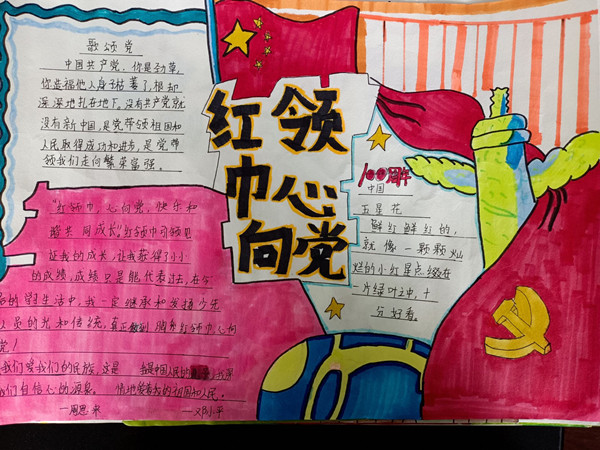 歌颂党
中国共产党,你是劲草,
你造福他人,身子枯萎了,根却
深深地扎在地下,没有共产党就
没有新中国,是党带领祖国和
人民取得成功和进步,是党带
领我们走向繁荣富强。
红领
巾心
向党
100周年
中国
五星花
鲜红鲜红的,
就像一颗颗灿
烂的小红星点缀在
一片绿叶之中,十
分好看。
"红领巾,心向党,快乐和
谐共同成长"红领巾可领见
证我的成长,让我获得小小
的成绩,成绩只是能代表过去,在今
后的学习生活中,我一定继承和发扬少先
人员的光和传统,真正做到胸系红领巾心向
党!
我们爱我们的民族,这是
我们自信心的源泉。
一周恩来
我是中国人民的
情地爱着我的祖国和人民。
一邓小平